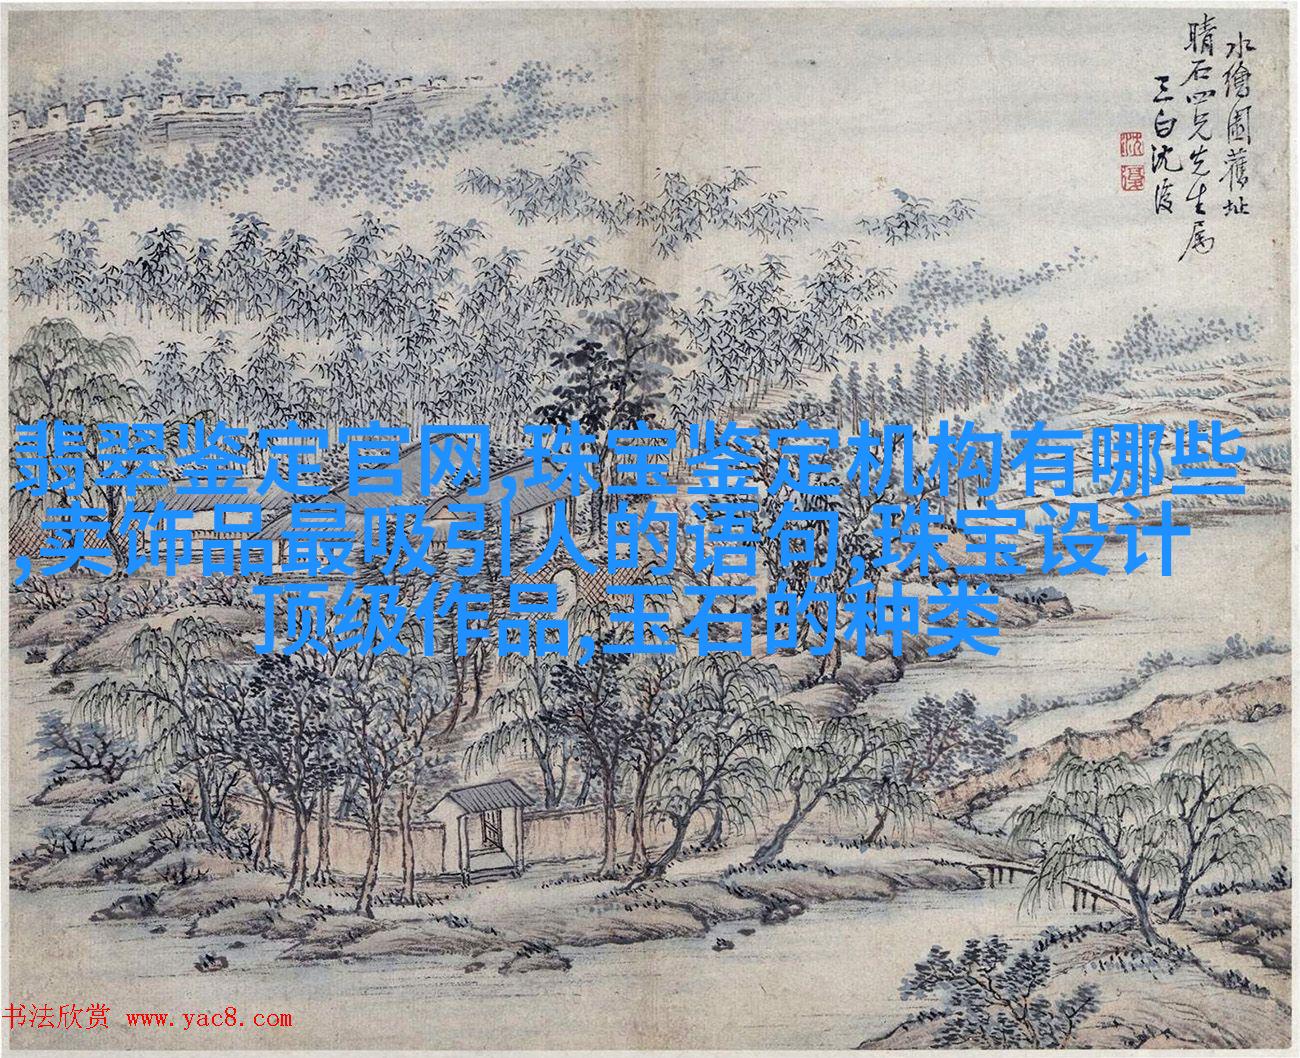 水繪園舊址
晴石四兄先生属
三白沈復
沈
復
翡翠鉴定官网,珠宝鉴定机构有哪些
,卖饰品最吸引人的语句,珠宝设计
顶级作品,玉石的种类
书法欣赏 www.yac8.com